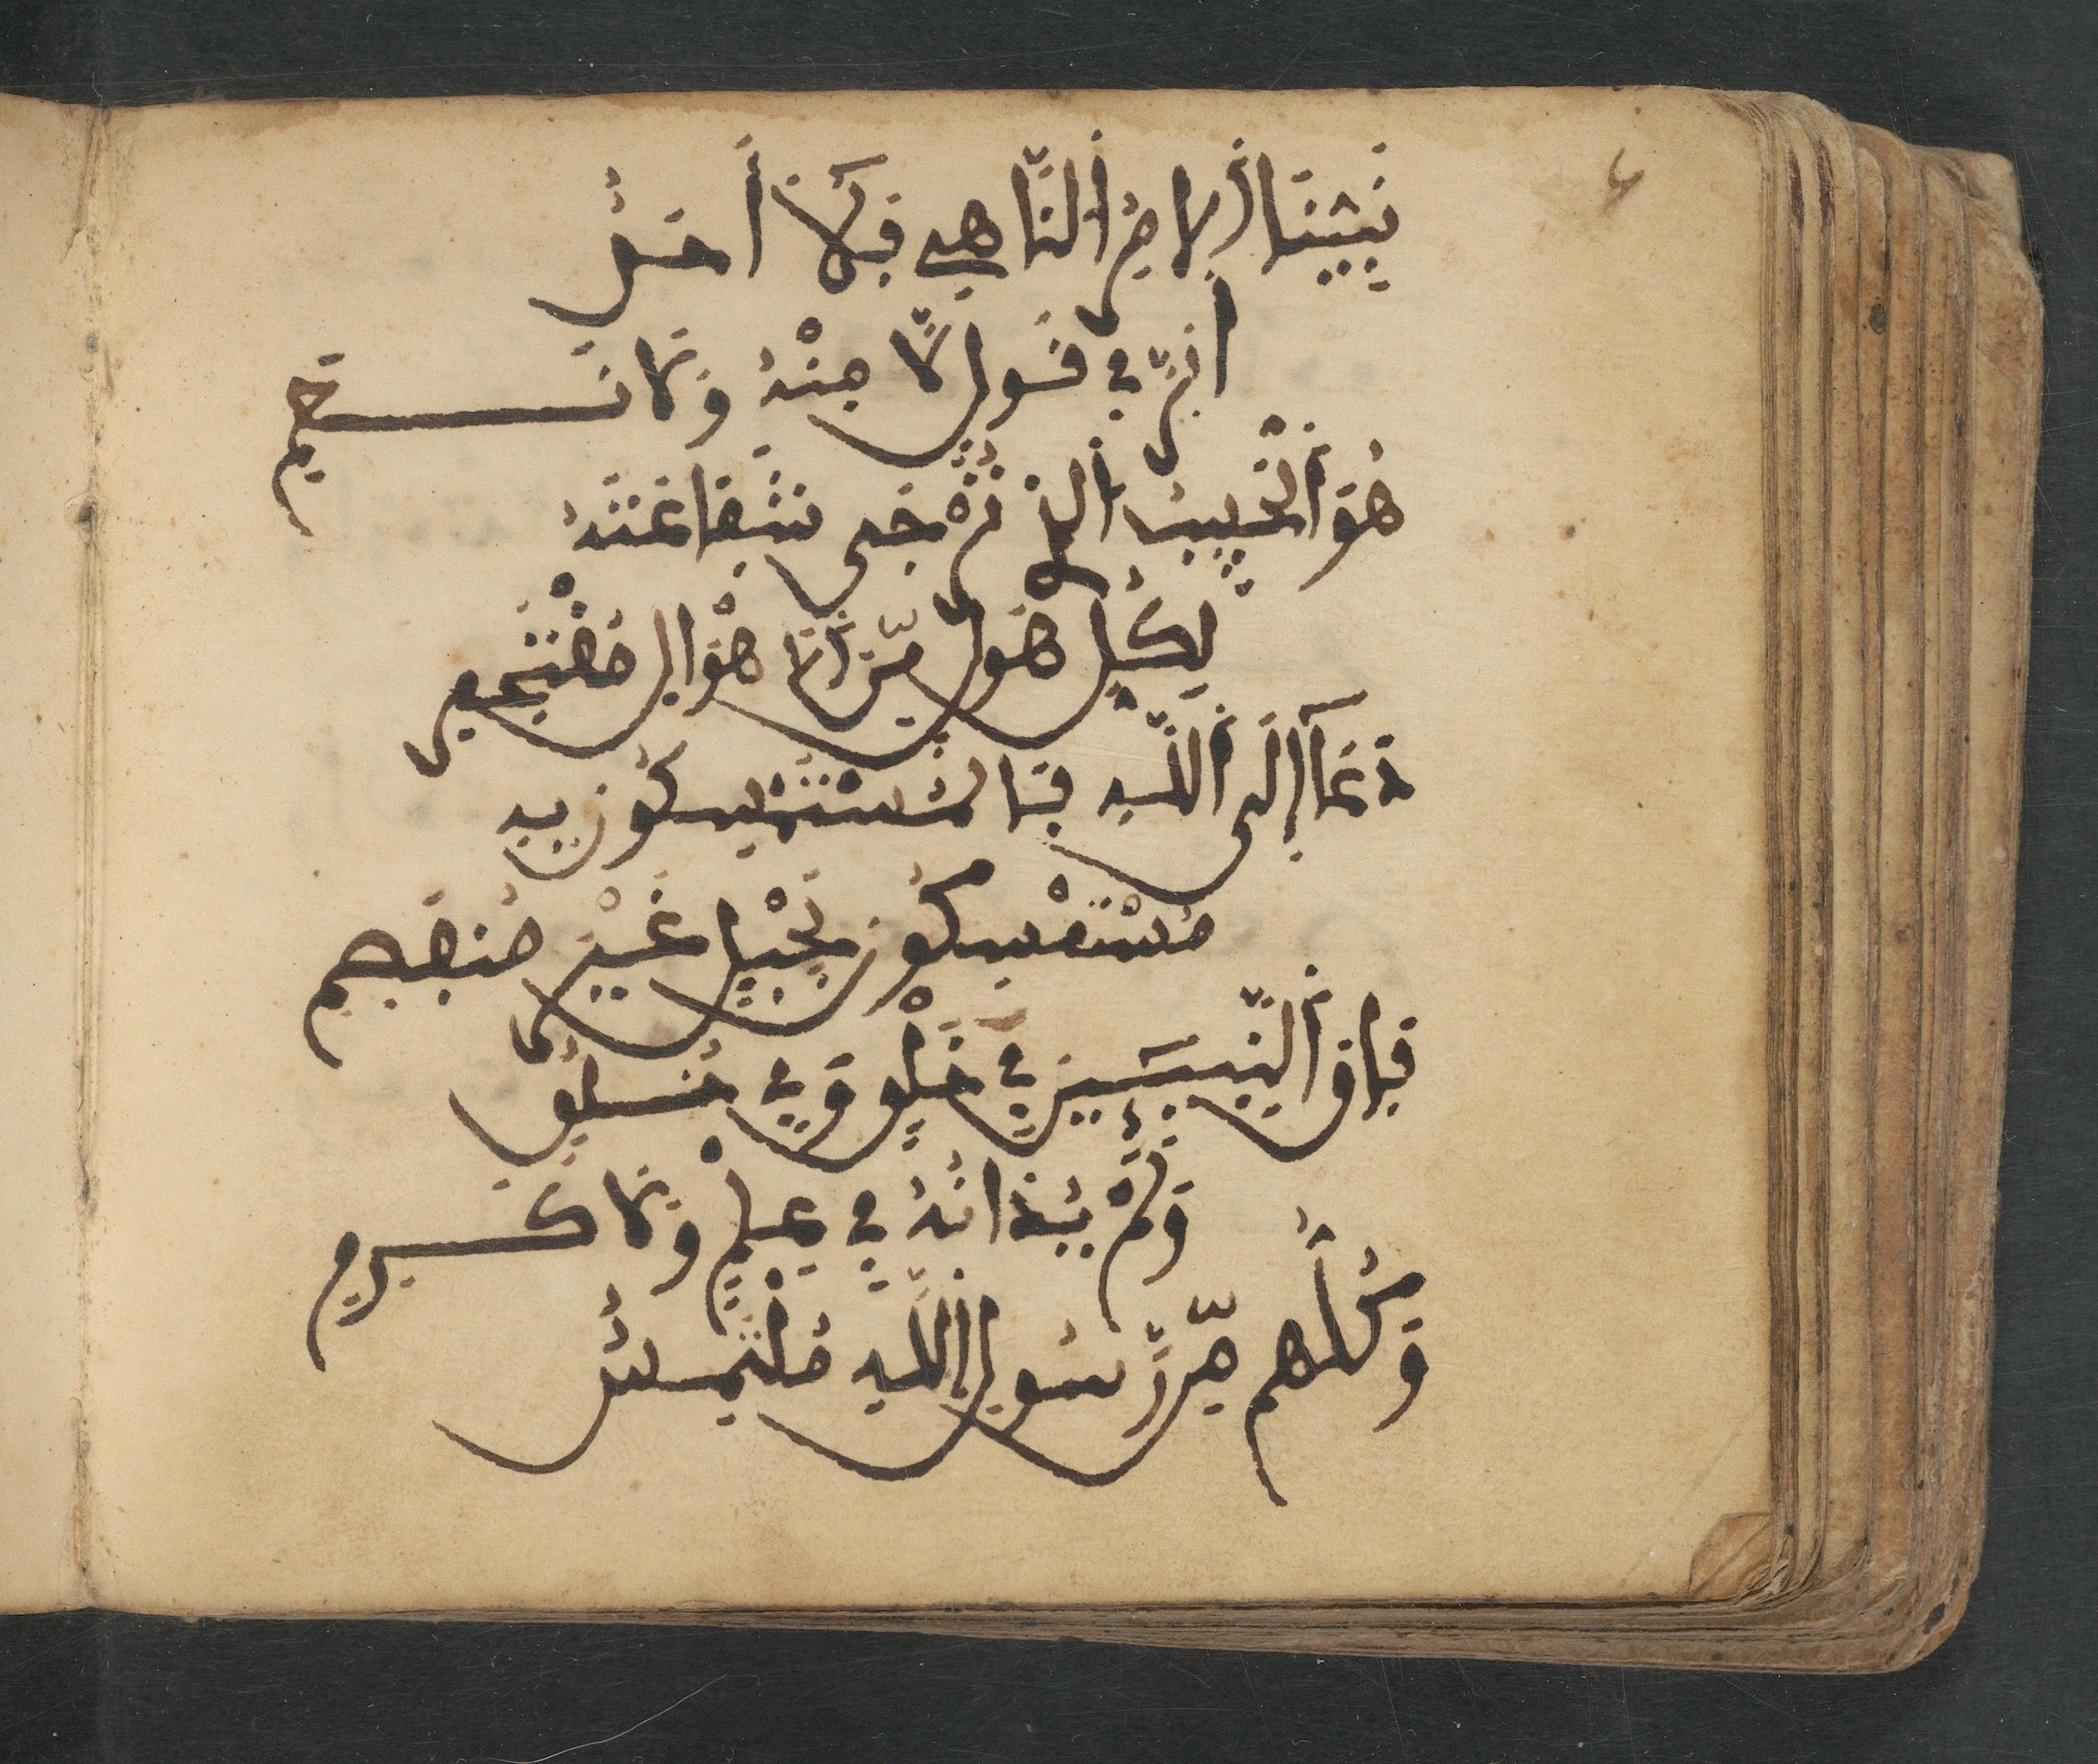 نَبِيُّنَا الْآمِرُ النَّاهِي فَلَا أَحَدٌ
أَبَرَّ فِي قَوْلِ لَا مِنْهُ وَلَا نَعَمِ
هُوَ الْحَبِيبُ الَّذِي تُرْجَى شَفَاعَتُهُ
لِكُلِّ هَوْلٍ مِّنَ الْأَهْوَالِ مُقْتَحَمِ
دَعَا إِلَى اللَّهِ فَالْمُسْتَمْسِكُونَ بِهِ
مُسْتَمْسِكُونَ بِحَبْلٍ غَيْرِ مُنفَصِمِ
فَاقَ النَّبِيِّينَ فِي خَلْقٍ وَفِي خُلُقٍ
وَلَمْ يُدَانُوهُ فِي عِلْمٍ وَلَا كَرَمِ
وَكُلُّهُم مِّن رَّسُولِ اللَّهِ مُلْتَمِسٌ